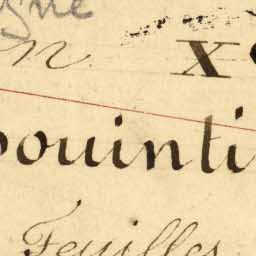 gne
n X
pointi
Feuilles